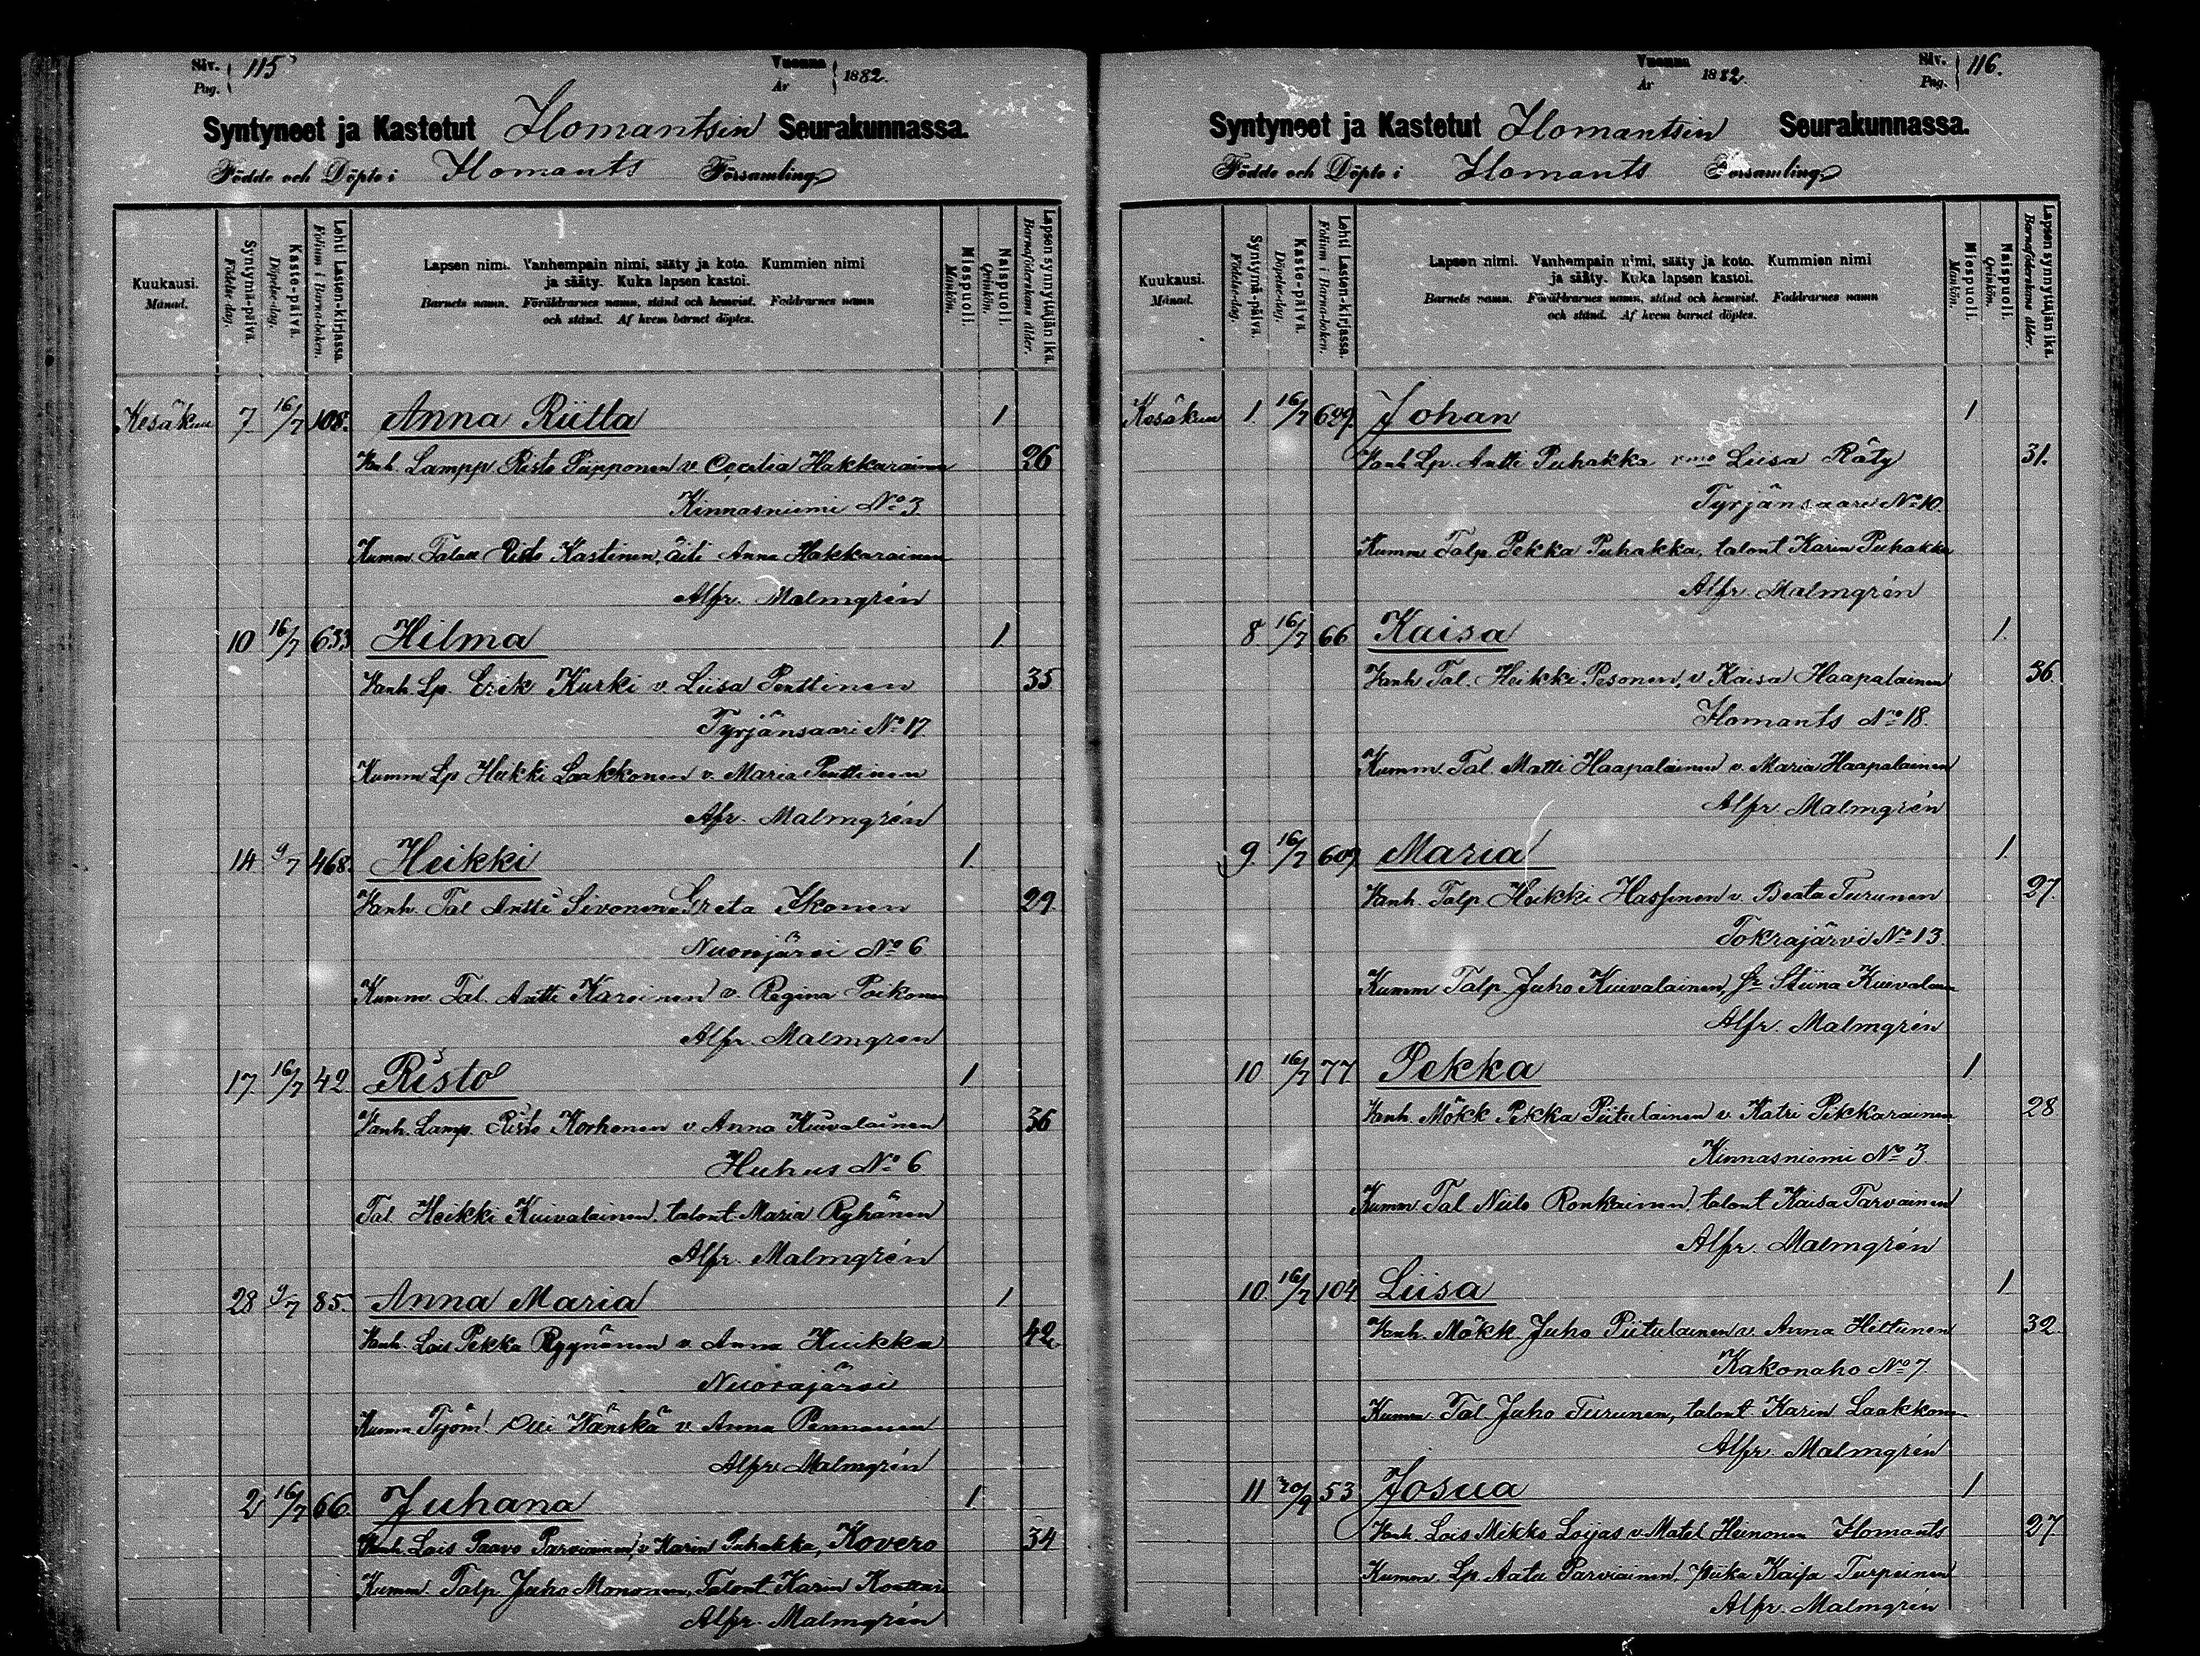 Siv. 115
Pag.
Vuonna 1882.
År
Syntyneet ja Kastetut Ilomantsin Seurakunnassa.
Födde och Döpte i Ilomants Församling
Kuukausi.
Månad.
Syntymä-päivä.
Födelse-dag.
Kaste-päivä.
Döpelse-dag.
Lehti Lasten-kirjassa.
Folium i Barna-boken.
Lapsen nimi. Vanhempain nimi, sääty ja koto. Kummien nimi
ja sääty. Kuka lapsen kastoi.
Barnets namn. Föräldrarnes namn, stånd och hemvist. Faddrarnes namn
och stånd. Af hvem barnet döptes.
Miespuoli.
Mankön.
Naispuoli.
Qvinkön.
Lapsen synnyttäjän ikä.
Barnaföderskans ålder.
Kesäkuu 7. 16/7 108. Anna Riitta 1
Vanh. Lampp Risto Piipponen v. Cecilia Hakkarainen 26
Kinnasniemi No 3.
Kumm. Risto Kastinen, äiti Anna Hakkarainen
Alfr. Malmgrén
10 16/7 633 Hilma 1.
Vanh. Lp. Erik Kurki v. Liisa Penttinen 35
Tyrjänsaari No 17.
Kumm Lp Heikki Laakkonen v. Maria Penttinen
Afr. Malmgrén
14 9/7 468. Heikki 1.
Vanh. Tal Antti Sivonen v Greta Ikonen 29.
Nuorajärvi No 6.
Kumm. Tal. Antti Karvinen v. Regina Poikonen
Alfr. Malmgren
17. 16/7 42 Risto 1
Vanh. Lamp. Risto Korhonen v Anna Kuivalainen 36
Huhus No 6
Tal. Heikki Kuivalainen, talont Maria Ryhänen
Alfr. Malmgrén
28 9/7 85. Anna Maria 1
Vanh. Lois Pekka Ryynänen v. Anna Huikka 42
Nuorajärvi
Kumm Työm. Olli Wänskä v. Anna Pennanen
Alfr. Malmgrén
2 16/7 66. Juhana 1.
Vanh. Lois Paavo Parviainen, v. Karin Puhakka, Kovero 34
Kumm. Talp. Juho Mononen, Talont. Karin
Alfr. Malmgrén
Siv. 116.
Pag.
Vuonna 1882.
År
Syntyneet ja Kastetut Ilomantsin Seurakunnassa.
Födde och Döpte i Ilomants Församling
Kuukausi.
Månad.
Syntymä-päivä.
Födelse-dag.
Kaste-päivä.
Döpelse-dag.
Lehti Lasten-kirjassa.
Folium i Barna-boken.
Lapsen nimi. Vanhempain nimi, sääty ja koto. Kummien nimi
ja sääty. Kuka lapsen kastoi.
Barnets namn. Föräldrarnes namn, stånd och hemvist. Faddrarnes namn
och stånd. Af hvem barnet döptes.
Miespuoli.
Mankön.
Naispuoli.
Qvinkön.
Lapsen synnyttäjän ikä.
Barnaföderskans ålder.
Kesäkuu 1. 16/7 629. Johan 1.
Vanh Lp. Antti Puhakka vmo Liisa Räty 31.
Tyrjänsaari No 10.
Kumm Talp. Pekka Puhakka, talont Karin Puhakka
Alfr. Malmgrén
8. 16/7 66 Kaisa 1.
Vanh Tal. Heikki Pesonen, v Kaisa Haapalainen 36.
Ilomants No 18.
Kumm. Tal. Matti Haapalainen v. Maria Haapalainen
Alfr. Malmgrén
9. 16/7 609. Maria 1.
Vanh. Talp. Heikki Hassinen v. Beata Turunen 27.
Tokrajärvi No 13.
Kumm Talp. Juho Kuivalainen, Stiina Kuivalain
Alfr. Malmgrén
10 16/7 77 Pekka 1.
Vanh. Mökk Pekka Piitulainen v. Katri Pikkarainen 28
Kinnasniemi No 3.
Kumm. Tal Niilo Ronkainen, talont Kaisa Tarvainen
Alfr. Malmgrén
10. 16/7 104 Liisa 1
Vanh. Mökk. Juho Piitulainen v. Anna Hiltunen 32.
Kakonaho No 7
Kumm. Tal. Juho Turunen, talont Karin Laakkonen
Alfr. Malmgrén
11 20/9 53 Josua 1
Vanh. Lois Mikko Loijas v Matel. Heinonen Ilomants 27
Kumm. Lp. Aatu Parviainen, Piika Kaisa Turpeinen
Alfr. Malmgrén